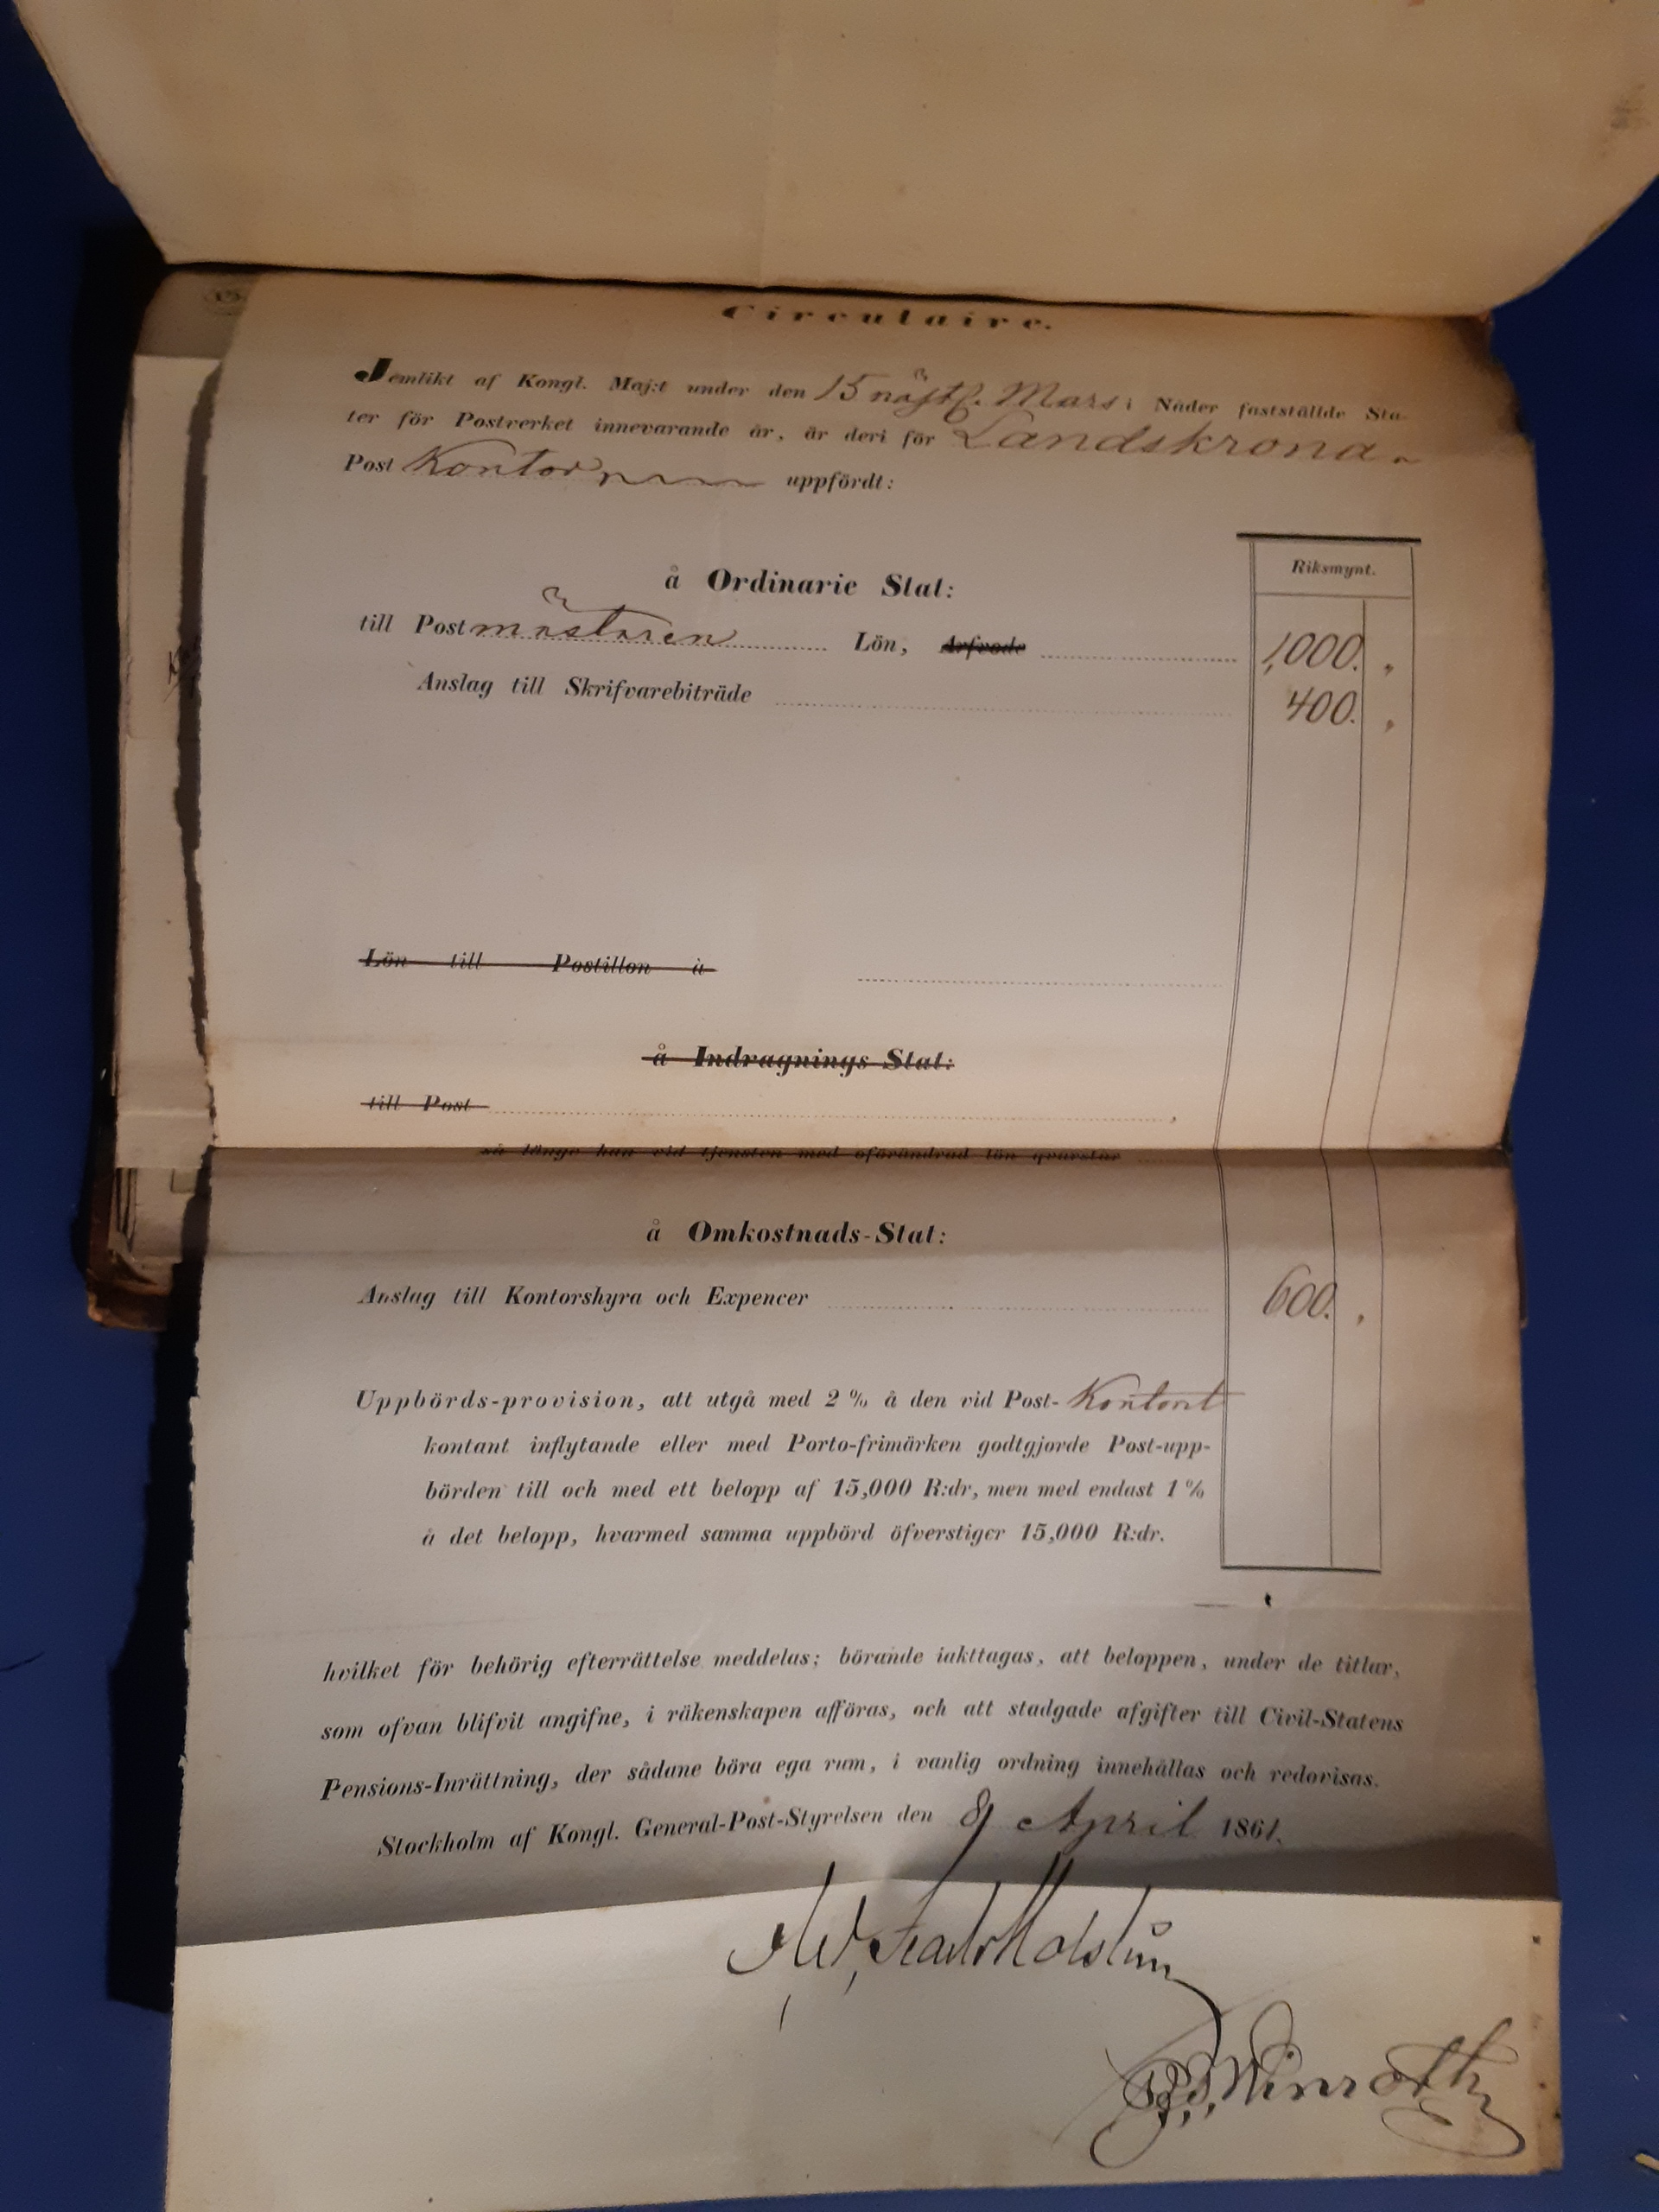 Circulaire.
Jemlikt af Kongl. Maj:t under den 15 nästl. Mars i Nåder fastställde Sta-
ter för Postverket innevarande år, är deri för Landskrona
Post Kontor uppfördt:
Riksmynt.
å Ordinarie Stat:
till Postmästaren Lön, Arfvode 1,000. „
Anslag till Skrifvarebiträde 400. „
Lön till Postillon à
å Indragnings-Stat:
till Post ,
så länge han vid tjensten med oförändrad lön qvarstår
å Omkostnads-Stat:
Anslag till Kontorshyra och Expencer 600. „
Uppbörds-provision, att utgå med 2 % å den vid Post-Kontoret
kontant inflytande eller med Porto-frimärken godtgjorde Post-upp-
börden till och med ett belopp af 15,000 R:dr, men med endast 1 %
å det belopp, hvarmed samma uppbörd öfverstiger 15,000 R:dr.
hvilket för behörig efterrättelse meddelas; börande iakttagas, att beloppen, under de titlar,
som ofvan blifvit angifne, i räkenskapen afföras, och att stadgade afgifter till Civil-Statens
Pensions-Inrättning, der sådane böra ega rum, i vanlig ordning innehållas och redovisas.
Stockholm af Kongl. General-Post-Styrelsen den 9 April 1861.
Winroth